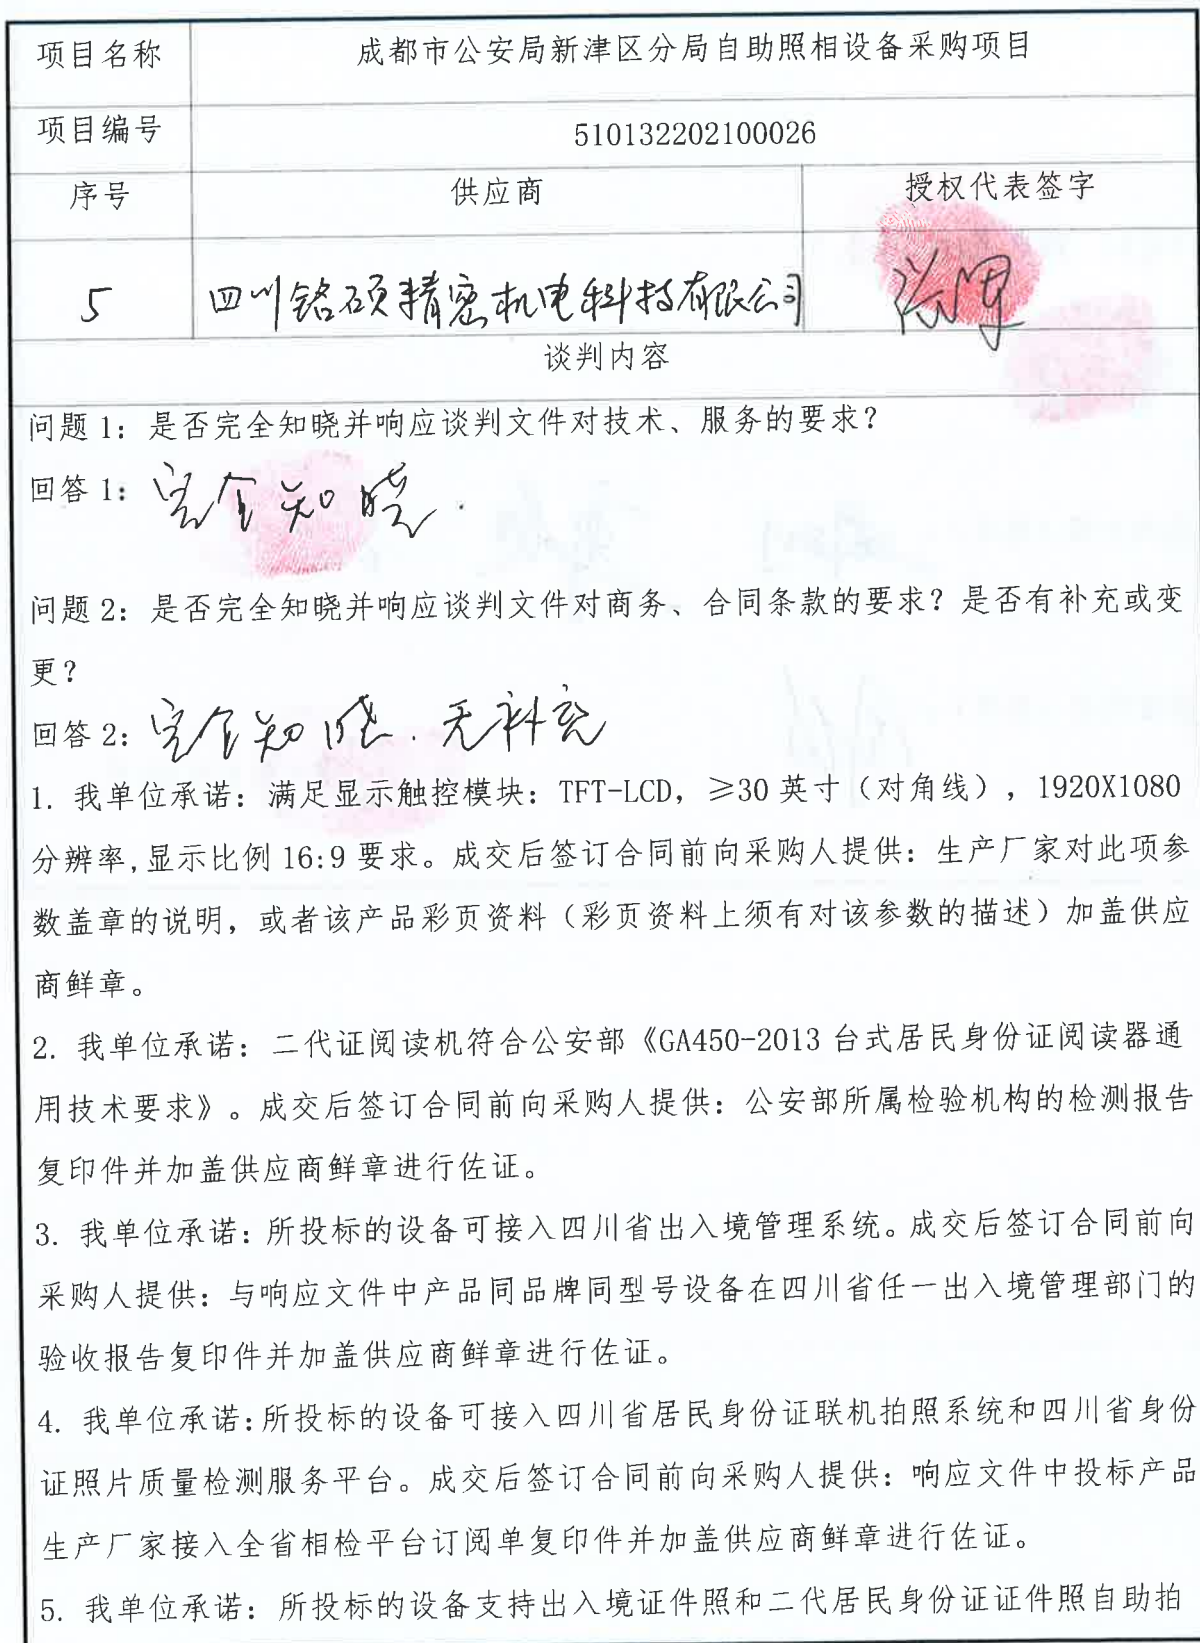 项目名称 成都市公安局新津区分局自助照相设备采购项目
项目编号 510132202100026
序号 供应商 授权代表签字
5 四川铭硕精密机电科技有限公司
谈判内容
问题1：是否完全知晓并响应谈判文件对技术、服务的要求？
回答1：完全知晓.
问题2：是否完全知晓并响应谈判文件对商务、合同条款的要求？是否有补充或变
更？
回答2：完全知晓.无补充
1. 我单位承诺：满足显示触控模块：TFT-LCD，≥30英寸（对角线），1920X1080
分辨率,显示比例16:9要求。成交后签订合同前向采购人提供：生产厂家对此项参
数盖章的说明，或者该产品彩页资料（彩页资料上须有对该参数的描述）加盖供应
商鲜章。
2. 我单位承诺：二代证阅读机符合公安部《GA450-2013台式居民身份证阅读器通
用技术要求》。成交后签订合同前向采购人提供：公安部所属检验机构的检测报告
复印件并加盖供应商鲜章进行佐证。
3. 我单位承诺：所投标的设备可接入四川省出入境管理系统。成交后签订合同前向
采购人提供：与响应文件中产品同品牌同型号设备在四川省任一出入境管理部门的
验收报告复印件并加盖供应商鲜章进行佐证。
4. 我单位承诺：所投标的设备可接入四川省居民身份证联机拍照系统和四川省身份
证照片质量检测服务平台。成交后签订合同前向采购人提供：响应文件中投标产品
生产厂家接入全省相检平台订阅单复印件并加盖供应商鲜章进行佐证。
5. 我单位承诺：所投标的设备支持出入境证件照和二代居民身份证证件照自助拍